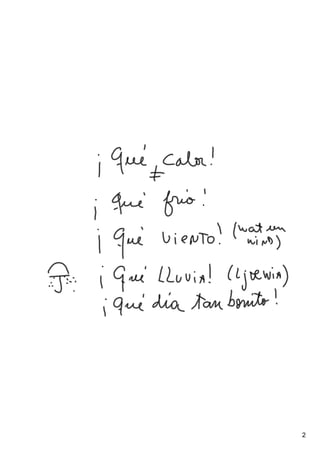 ¡Qué calor!
≠
¡Qué frío!
¡Qué VIENTO! (wat een WIND)
¡Qué LLUVIA! (Ljoewia)
¡Qué día tan bonito!
2